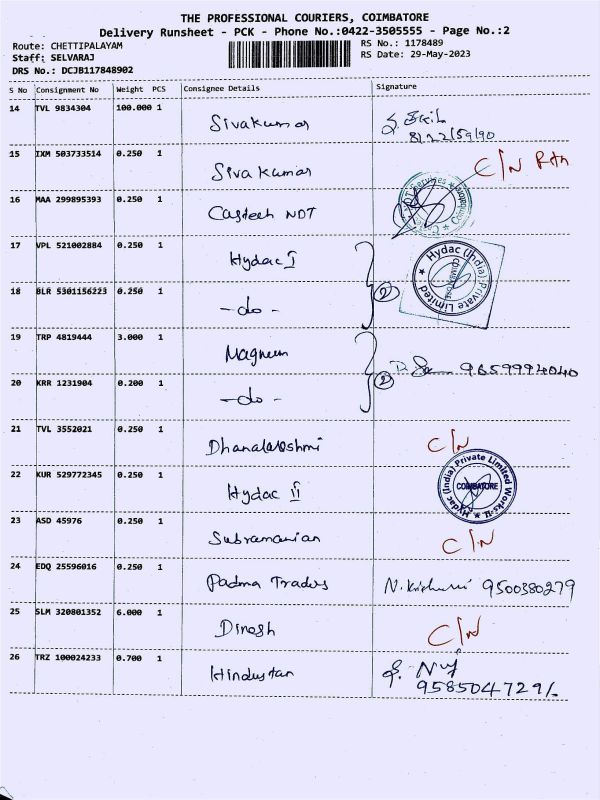 THE PROFESSIONAL COURIERS, COIMBATORE
Delivery Runsheet - PCK - Phone No.:0422-3505555 - Page No.:2
Route: CHETTIPALAYAM RS No.: 1178489
Staff: SELVARAJ RS Date: 29-May-2023
DRS No.: DCJB117848902
S No Consignment No Weight PCS Consignee Details Signature
14 TVL 9834304 100.000 1 Sivakumar
15 IXM 503733514 0.250 1 Sivakumar C/N Rtn
16 MAA 299895393 0.250 1 Castech NDT
17 VPL 521002884 0.250 1 Hydac I
Hydac (India) Private Limited
COIMBATORE
18 BLR 5301156223 0.250 1 -do- 2
19 TRP 4819444 3.000 1 Magnum
20 KRR 1231904 0.200 1 -do- 2
21 TVL 3552021 0.250 1 Dhanalakshmi C/N
22 KUR 529772345 0.250 1 Hydac II
Hydac (India) Private Limited Works-II
COIMBATORE
23 ASD 45976 0.250 1 Subramanian C/N
24 EDQ 25596016 0.250 1 Padma Traders 9500380279
25 SLM 320801352 6.000 1 Dinesh C/N
26 TRZ 100024233 0.700 1 Hindustan
9585047291